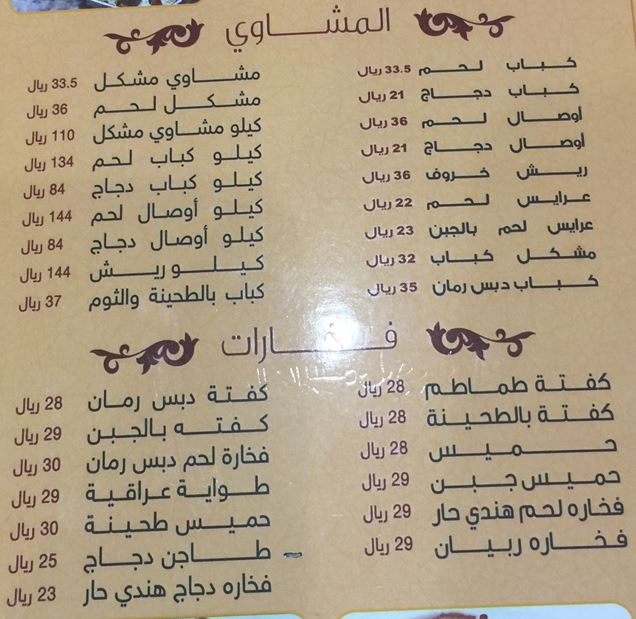 المشاوي
كباب لحم 33.5 ريال
كباب دجاج 21 ريال
أوصال لحم 36 ريال
أوصال دجاج 21 ريال
ريش خروف 36 ريال
عرايس لحم 22 ريال
عرايس لحم بالجبن 23 ريال
مشكل كباب 32 ريال
كباب دبس رمان 35 ريال
مشاوي مشكل 33.5 ريال
مشكل لحم 36 ريال
كيلو مشاوي مشكل 110 ريال
كيلو كباب لحم 134 ريال
كيلو كباب دجاج 84 ريال
كيلو أوصال لحم 144 ريال
كيلو أوصال دجاج 84 ريال
كيلو ريش 144 ريال
كباب بالطحينة والثوم 37 ريال
فخارات
كفتة طماطم 28 ريال
كفتة بالطحينة 28 ريال
حميس 28 ريال
حميس جبن 29 ريال
فخاره لحم هندي حار 29 ريال
فخاره ربيان 29 ريال
كفتة دبس رمان 28 ريال
كفته بالجبن 29 ريال
فخارة لحم دبس رمان 30 ريال
طواية عراقية 29 ريال
حميس طحينة 30 ريال
طاجن دجاج 25 ريال
فخاره دجاج هندي حار 23 ريال